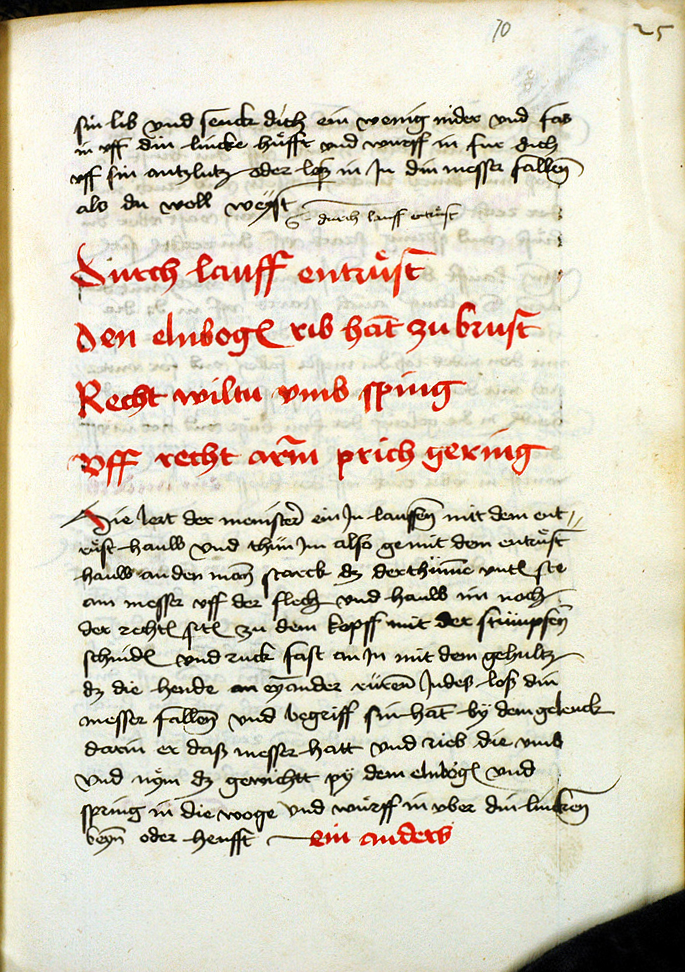 70
25
sin lib vnd senck dich ein wenig nider vnd fas
in vff din lincke hüfft vnd wurff in fur dich
vff sin antzlutz oder loß in in din messer fallen
als du woll weyst
durch lauff entrüst
Durch lauff entrüst
den elnbogen rib hat zu brust
Recht wiltu vmb sping
vff recht arm prich gering
Hie lert der meinster ein In lauffen mit dem ent
rüst hauw vnd thün Im also ge mit dem entrüst
hauw an den man starck dz der thüme vnten ste
am messer vff der flech vnd hauw im noch
der rechten siten zu dem kopff mit der stümpfen
schniden vnd ruck fast an in mit dem gehultz
dz die hende an eynander rüren Indes loß din
messer fallen vnd begriff sin hant by dem gelenck
darin er daß messer hatt vnd rieb die vmb
vnd nym dz gewichtt py dem elnbogen vnd
spring in die woge vnd würff in vber din lincken
beyn oder heufft ein anders